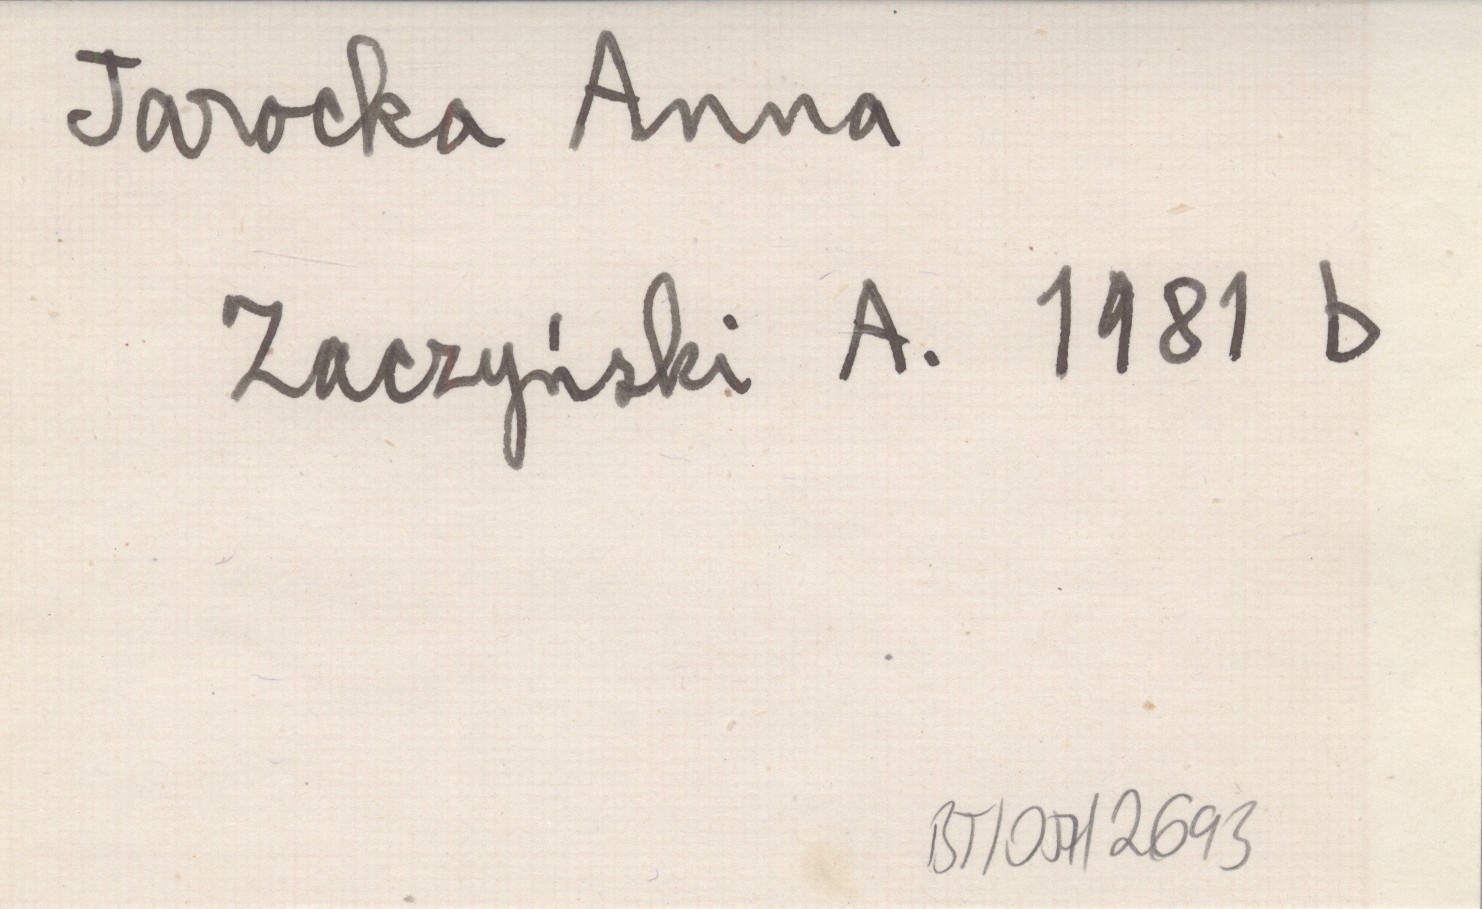 Jarocka Anna
Zaczyński A. 1981 b
BT/OSA/2693